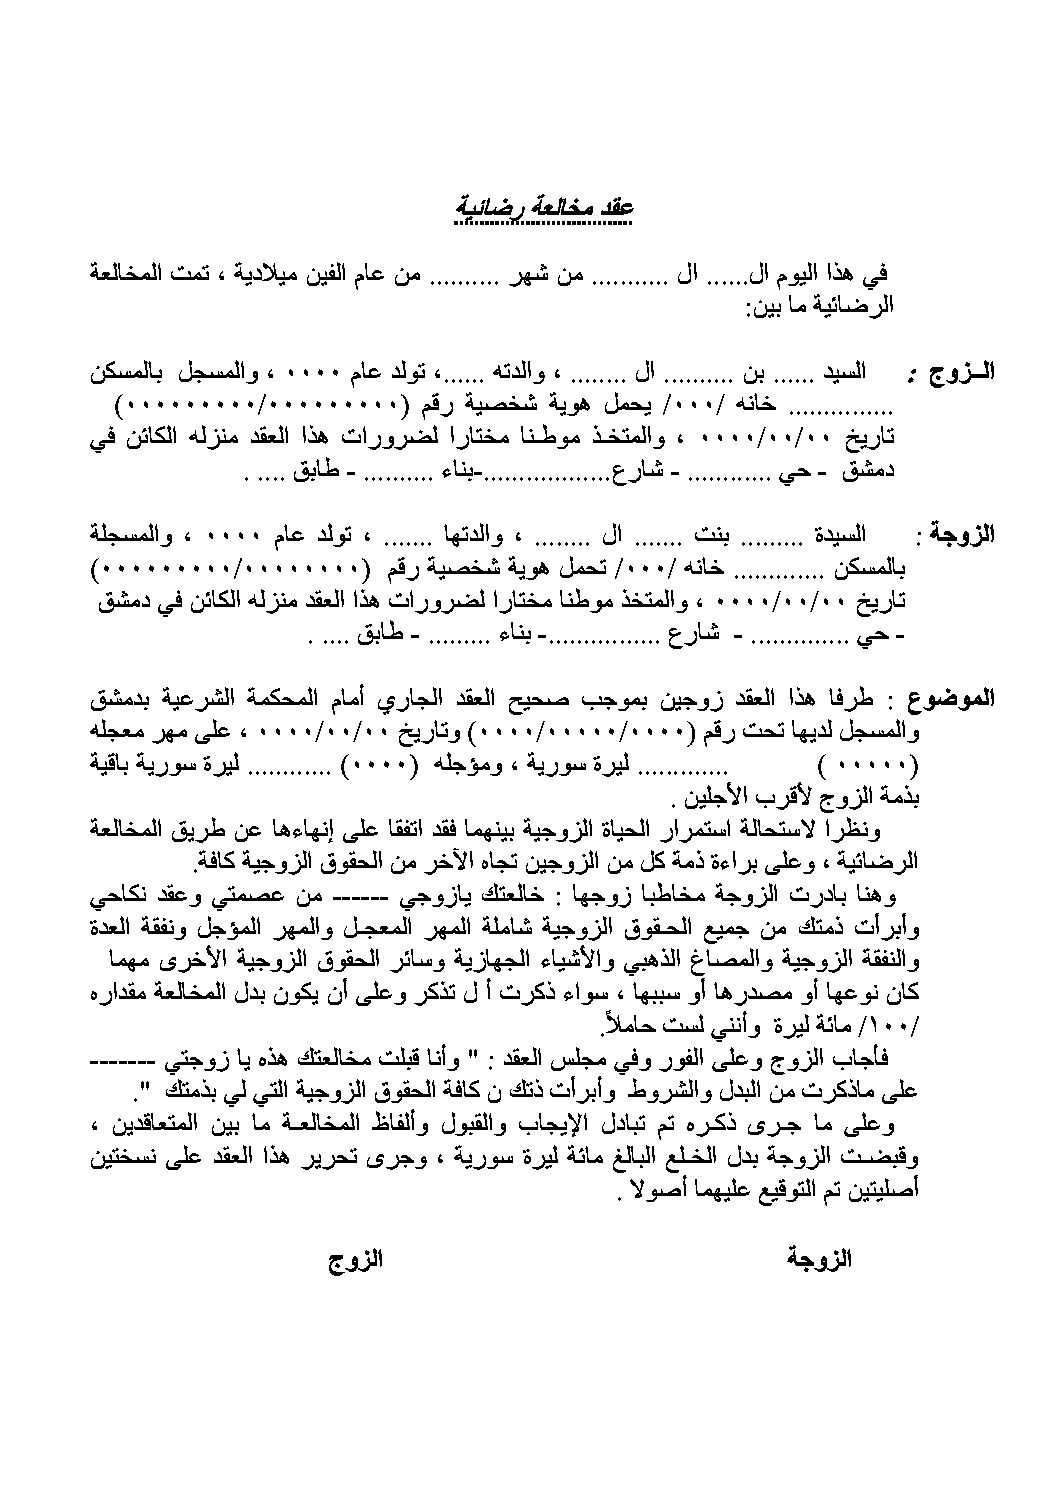 عقد مخالعة رضائية
في هذا اليوم ال...... ال ........... من شهر .......... من عام الفين ميلادية ، تمت المخالعة
الرضائية ما بين:
الــزوج : السيد ...... بن .......... ال ........ ، والدته ......، تولد عام ٠٠٠٠ ، والمسجل بالمسكن
............... خانه /٠٠٠/ يحمل هوية شخصية رقم (٠٠٠٠٠٠٠٠٠/٠٠٠٠٠٠٠٠٠)
تاريخ ٠٠/٠٠/٠٠٠٠ ، والمتخـذ موطـنا مختارا لضرورات هذا العقد منزله الكائن في
دمشق - حي ............ - شارع..................-بناء .......... - طابق .... .
الزوجة : السيدة ......... بنت ....... ال ........ ، والدتها ....... ، تولد عام ٠٠٠٠ ، والمسجلة
بالمسكن ............. خانه /٠٠٠/ تحمل هوية شخصية رقم (٠٠٠٠٠٠٠٠/٠٠٠٠٠٠٠٠٠)
تاريخ ٠٠/٠٠/٠٠٠٠ ، والمتخذ موطنا مختارا لضرورات هذا العقد منزله الكائن في دمشق
- حي .............. - شارع ................- بناء ......... - طابق .... .
الموضوع : طرفا هذا العقد زوجين بموجب صحيح العقد الجاري أمام المحكمة الشرعية بدمشق
والمسجل لديها تحت رقم (٠٠٠٠/٠٠٠٠٠/٠٠٠٠) وتاريخ ٠٠/٠٠/٠٠٠٠ ، على مهر معجله
(٠٠٠٠٠ ) ............. ليرة سورية ، ومؤجله (٠٠٠٠) ............ ليرة سورية باقية
بذمة الزوج لأقرب الأجلين .
ونظرا لاستحالة استمرار الحياة الزوجية بينهما فقد اتفقا على إنهاءها عن طريق المخالعة
الرضائية ، وعلى براءة ذمة كل من الزوجين تجاه الآخر من الحقوق الزوجية كافة.
وهنا بادرت الزوجة مخاطبا زوجها : خالعتك يازوجي ------ من عصمتي وعقد نكاحي
وأبرأت ذمتك من جميع الحـقوق الزوجية شاملة المهر المعجـل والمهر المؤجل ونفقة العدة
والنفقة الزوجية والمصاغ الذهبي والأشياء الجهازية وسائر الحقوق الزوجية الأخرى مهما
كان نوعها أو مصدرها أو سببها ، سواء ذكرت أ ل تذكر وعلى أن يكون بدل المخالعة مقداره
/١٠٠/ مائة ليرة وأنني لست حاملاً.
فأجاب الزوج وعلى الفور وفي مجلس العقد : " وأنا قبلت مخالعتك هذه يا زوجتي -------
على ماذكرت من البدل والشروط وأبرأت ذتك ن كافة الحقوق الزوجية التي لي بذمتك ".
وعلى ما جـرى ذكـره تم تبادل الإيجاب والقبول وألفاظ المخالعـة ما بين المتعاقدين ،
وقبضـت الزوجة بدل الخـلع البالغ مائة ليرة سورية ، وجرى تحرير هذا العقد على نسختين
أصليتين تم التوقيع عليهما أصولا .
الزوجة الزوج